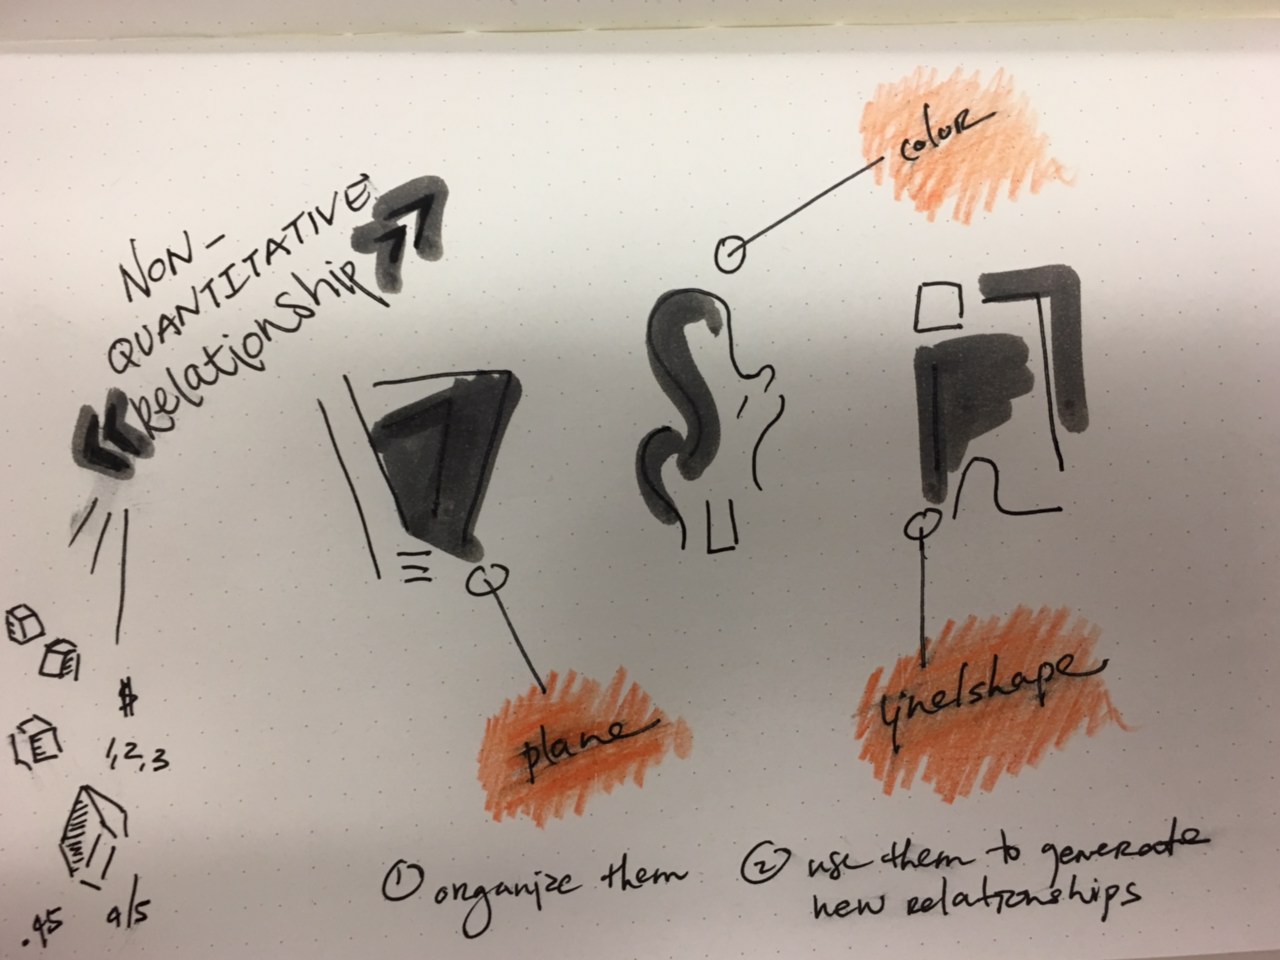 NON-
QUANTITATIVE
Relationship
color
plane
line/shape
$
1,2,3
.45
4/5
① organize them
② use them to generate
new relationships